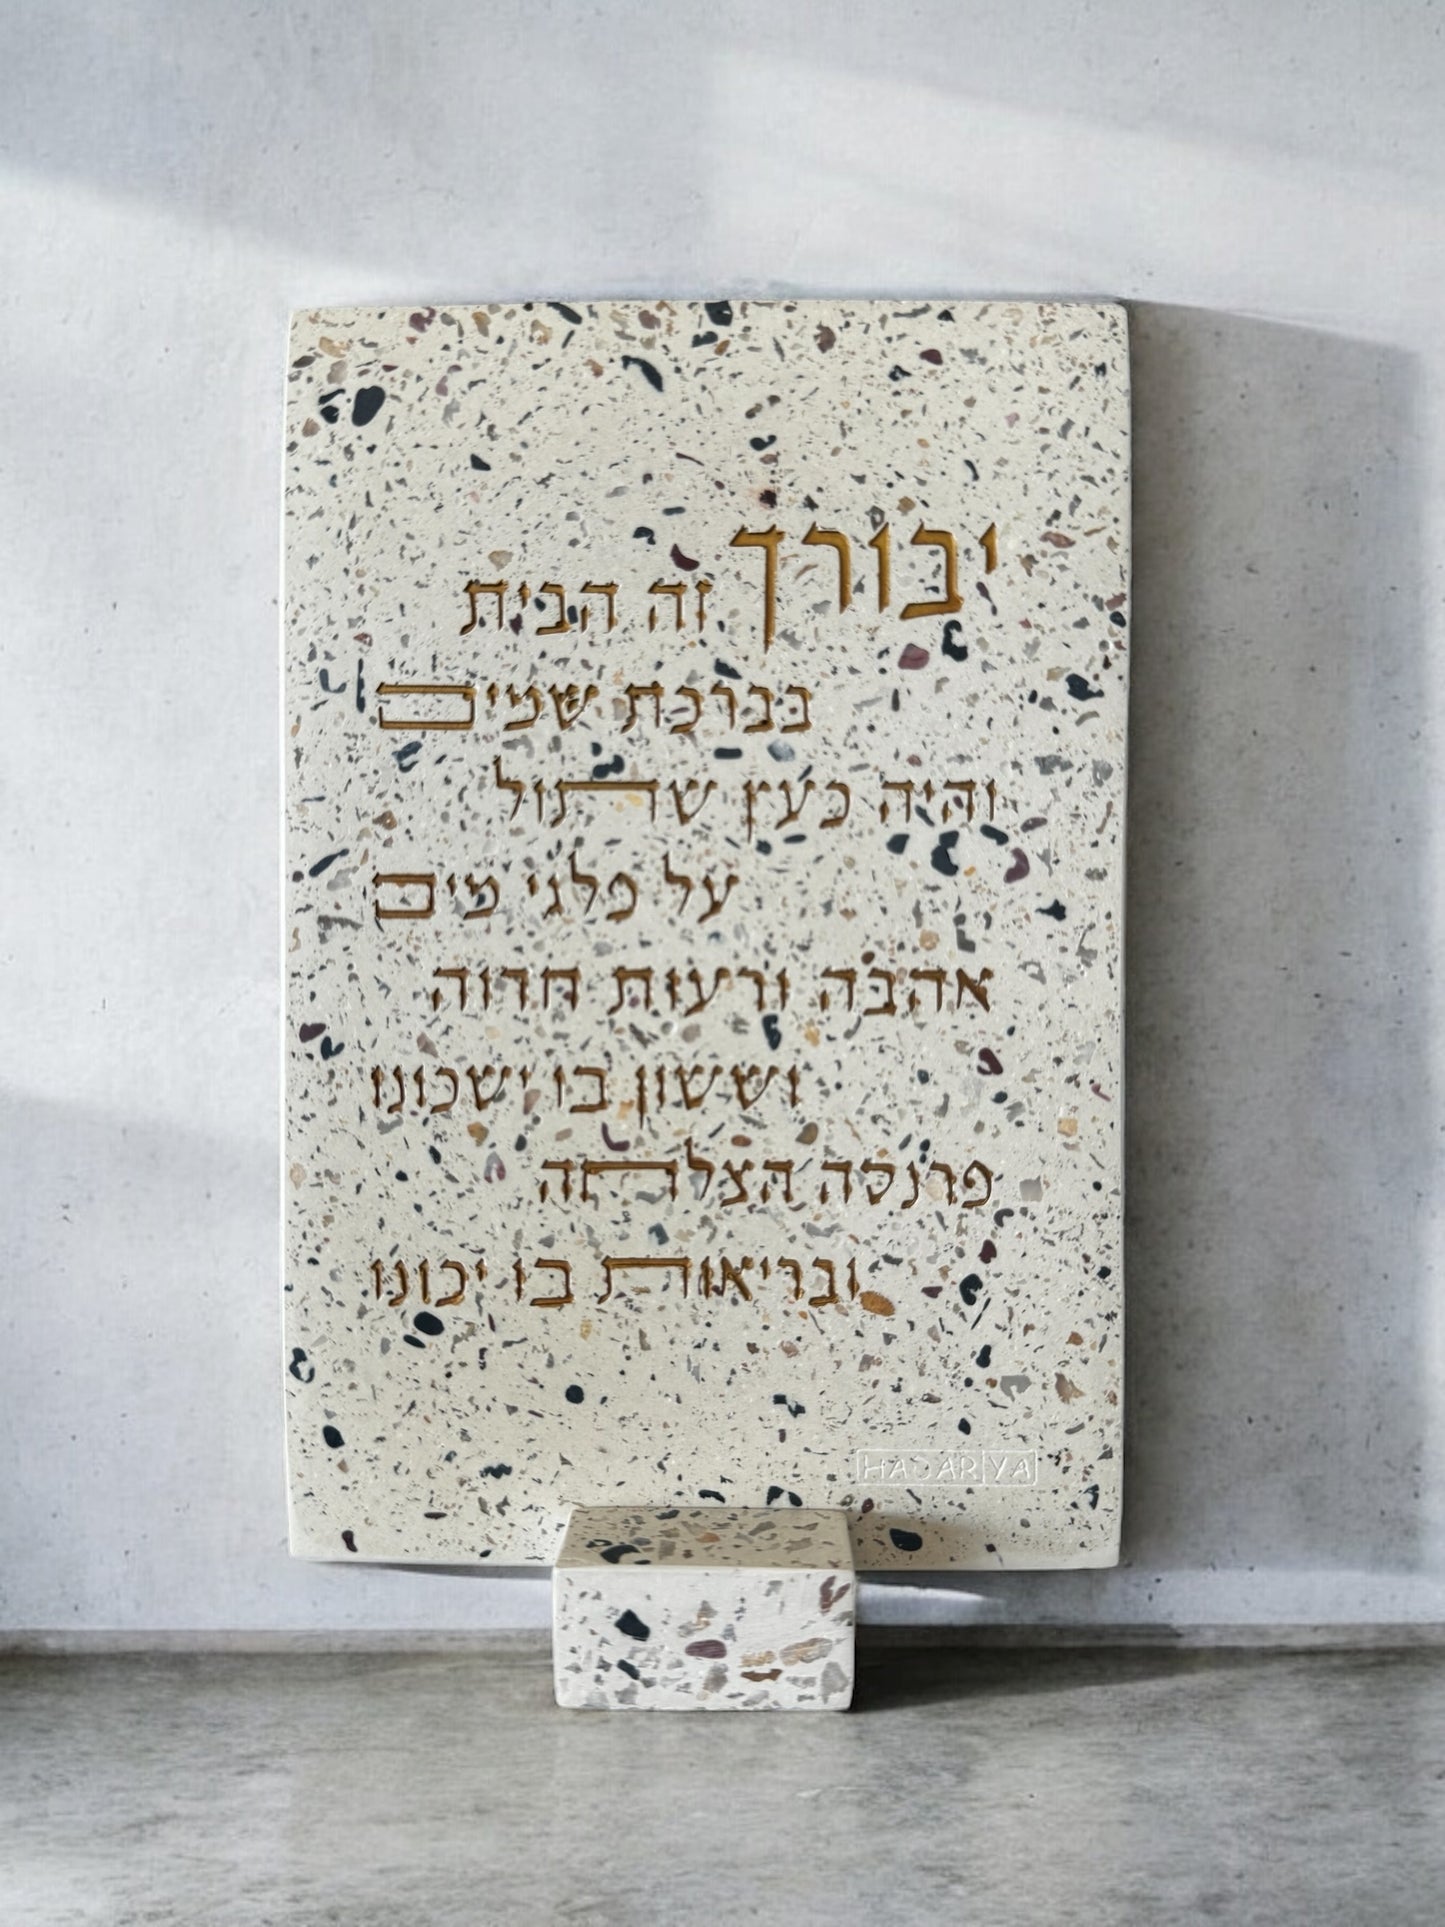 יבורך זה הבית
בברכת שמים
והיה כעץ שתול
על פלגי מים
אהבה ורעות חדוה
וששון בו ישכונו
פרנסה הצלחה
ובריאות בו יכונו
HADARYA